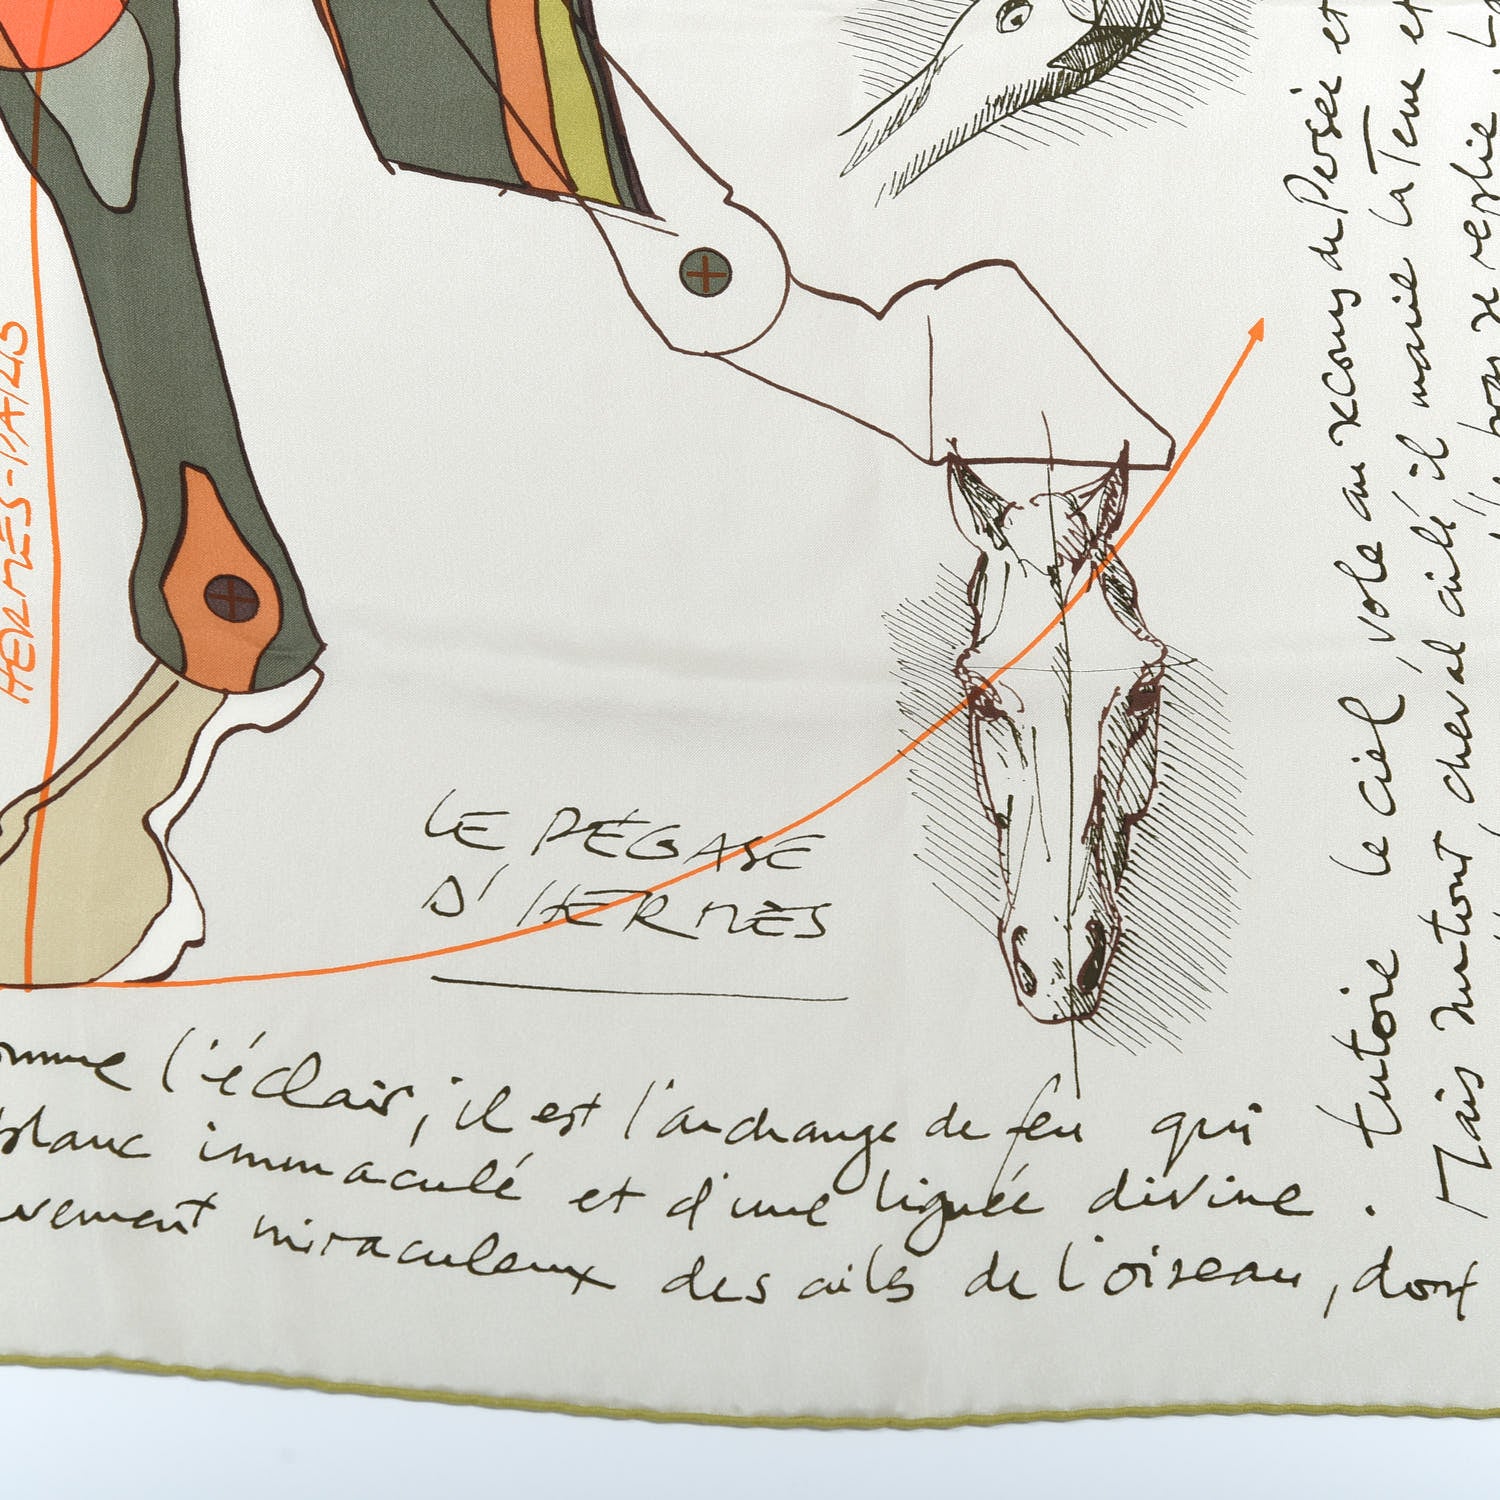 HERMÈS-PARIS
LE PÉGASE
D'HERMÈS
l'éclair, il est l'archange de feu qui
blanc immaculé et d'une lignée divine.
miraculeux des ailes de l'oiseau, dont
tutoie le ciel, vole au secours de Persée et
Mais surtout cheval ailé, il marie la Terre et
se replie.